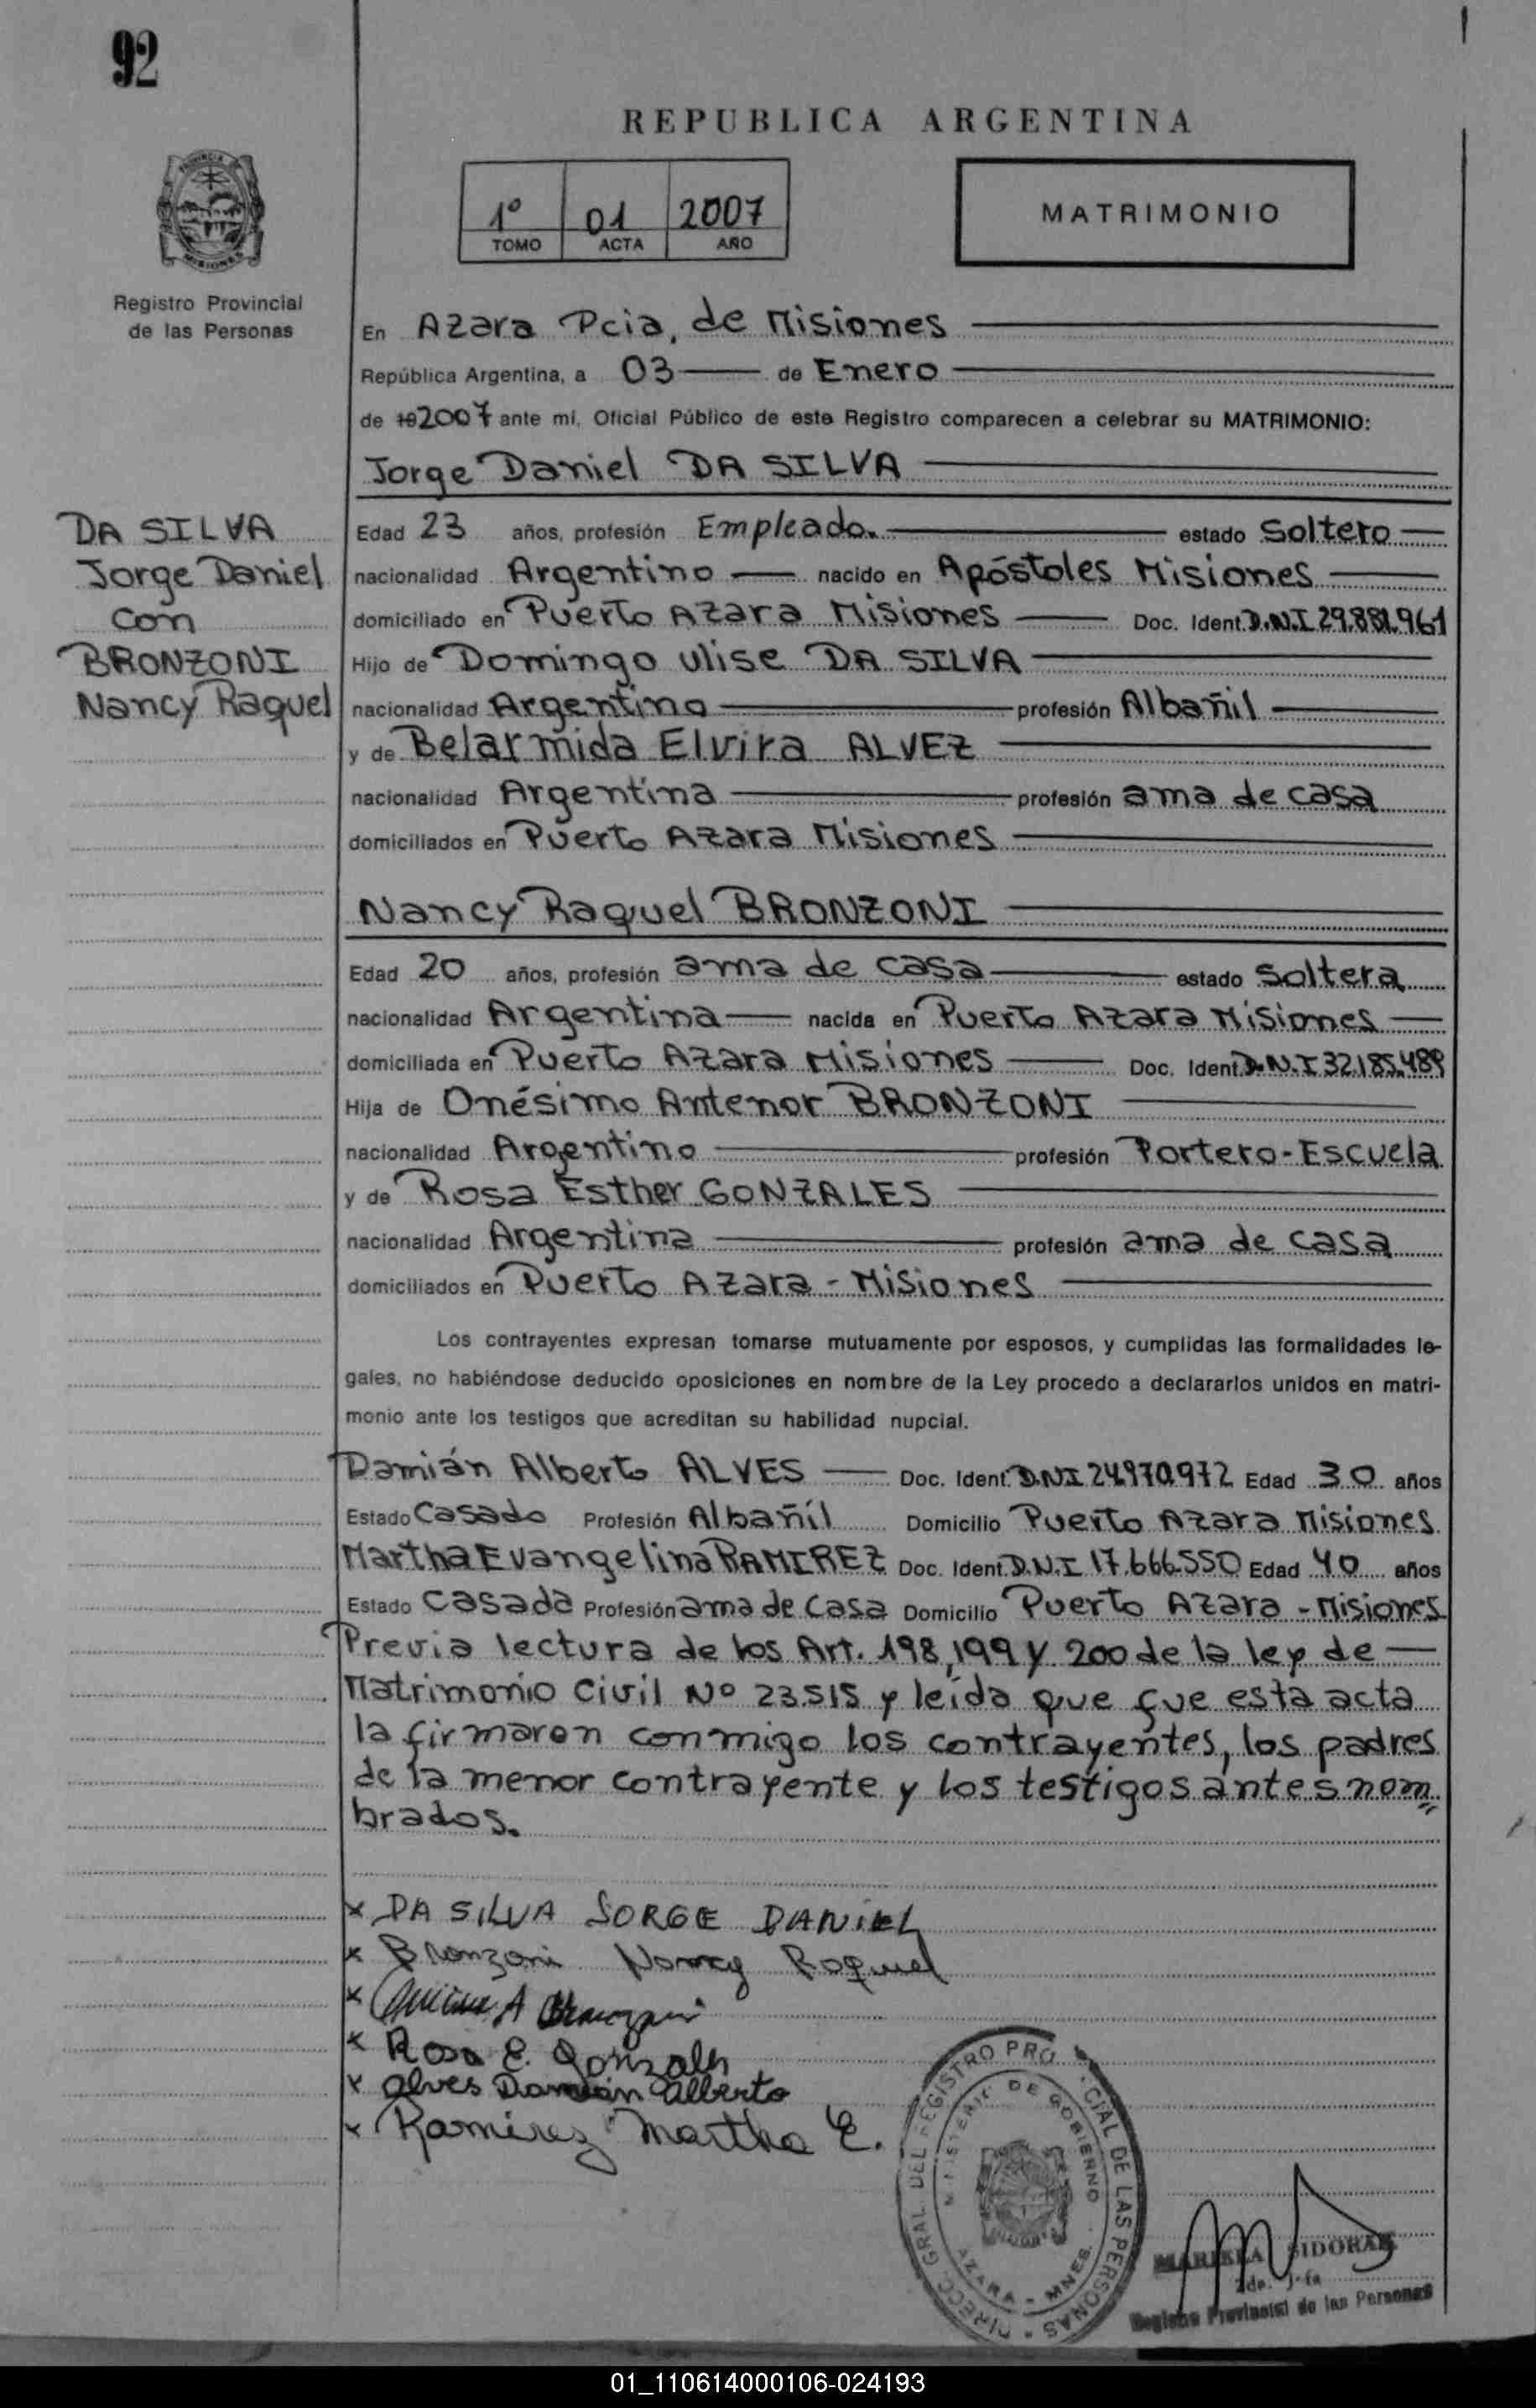 92
REPUBLICA ARGENTINA
1º 01 2007
TOMO ACTA AÑO
MATRIMONIO
PROVINCIA DE MISIONES
Registro Provincial
de las Personas
En Azara Pcia, de Misiones
República Argentina, a 03 de Enero
de 192007 ante mi, Oficial Público de este Registro comparecen a celebrar su MATRIMONIO:
Jorge Daniel DA SILVA
DA SILVA
Jorge Daniel
con
BRONZONI
Nancy Raquel
Edad 23 años, profesión Empleado. estado Soltero
nacionalidad Argentino nacido en Apóstoles Misiones
domiciliado en Puerto Azara Misiones Doc. Ident. D.N.I 29.881.961
Hijo de Domingo Ulise DA SILVA
nacionalidad Argentino profesión Albañil
y de Belarmida Elvira ALVEZ
nacionalidad Argentina profesión ama de casa
domiciliados en Puerto Azara Misiones
Nancy Raquel BRONZONI
Edad 20 años, profesión ama de casa estado Soltera
nacionalidad Argentina nacida en Puerto Azara Misiones
domiciliada en Puerto Azara Misiones Doc. Ident. D.N.I 32.185.489
Hija de Onésimo Antenor BRONZONI
nacionalidad Argentino profesión Portero-Escuela
y de Rosa Esther GONZALES
nacionalidad Argentina profesión ama de casa
domiciliados en Puerto Azara - Misiones
Los contrayentes expresan tomarse mutuamente por esposos, y cumplidas las formalidades le-
gales, no habiéndose deducido oposiciones en nombre de la Ley procedo a declararlos unidos en matri-
monio ante los testigos que acreditan su habilidad nupcial.
Damián Alberto ALVES Doc. Ident. D.N.I 24.970.972 Edad 30 años
Estado Casado Profesión Albañil Domicilio Puerto Azara Misiones
Martha Evangelina RAMIREZ Doc. Ident. D.N.I 17.666.550 Edad 40 años
Estado Casada Profesión ama de casa Domicilio Puerto Azara - Misiones
Previa lectura de los Art. 198, 199 y 200 de la ley de
Matrimonio Civil Nº 23.515 y leída que fue esta acta
la firmaron conmigo los contrayentes, los padres
de la menor contrayente y los testigos antes nom
brados.
x DA SILVA JORGE DANIEL
x Bronzoni Nancy Raquel
x A Bronzoni
x Rosa E. Gonzales
x Alves Damián Alberto
x Ramirez Martha E.
DIRECC. GRAL. DEL REGISTRO PROVINCIAL DE LAS PERSONAS
MINISTERIO DE GOBIERNO
AZARA - MNES.
MARIELA SIDORAK
Registro Provincial de las Personas
01_110614000106-024193